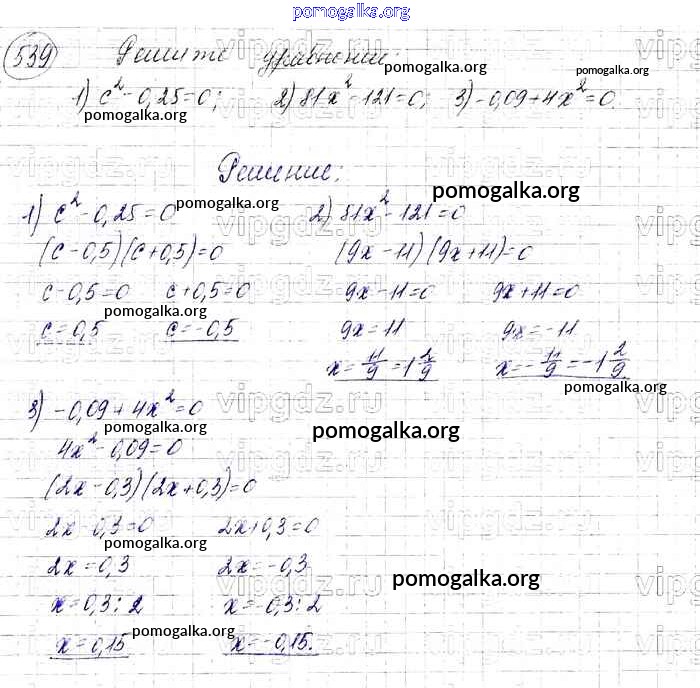 pomogalka.org
539 Решите уравнение:
1) c² - 0,25 = 0; 2) 81x² - 121 = 0; 3) -0,09 + 4x² = 0.
pomogalka.org pomogalka.org pomogalka.org
Решение:
pomogalka.org
1) c² - 0,25 = 0 2) 81x² - 121 = 0
(c - 0,5)(c + 0,5) = 0 (9x - 11)(9x + 11) = 0
c - 0,5 = 0 c + 0,5 = 0 9x - 11 = 0 9x + 11 = 0
pomogalka.org
c = 0,5 c = -0,5 9x = 11 9x = -11
x = 11/9 = 1 2/9 x = -11/9 = -1 2/9
pomogalka.org
3) -0,09 + 4x² = 0
pomogalka.org pomogalka.org
4x² - 0,09 = 0
(2x - 0,3)(2x + 0,3) = 0
2x - 0,3 = 0 2x + 0,3 = 0
pomogalka.org
2x = 0,3 2x = -0,3
pomogalka.org
x = 0,3 : 2 x = -0,3 : 2
pomogalka.org
x = 0,15 x = -0,15.
vipgdz.ru